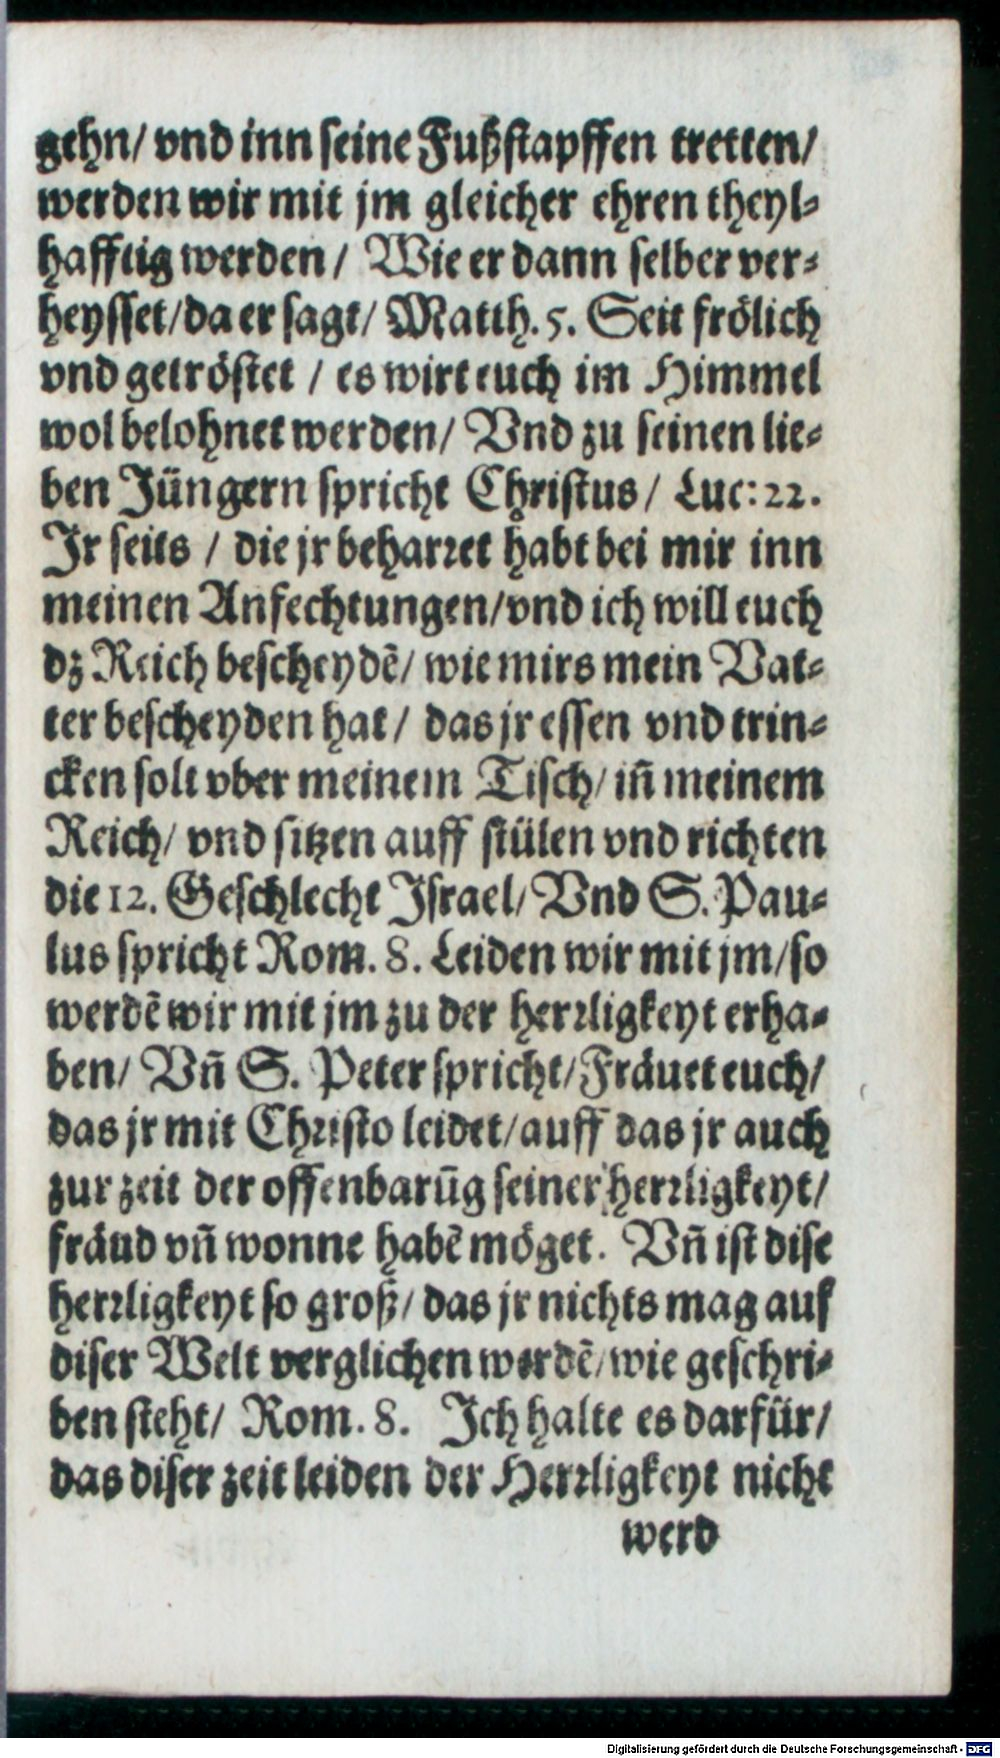 gehn/ vnd inn seine Fußstapffen tretten/
werden wir mit jm gleicher ehren theyl-
hafftig werden/ Wie er dann selber ver-
heysset/ da er sagt/ Matth. 5. Seit frölich
vnd getröstet / es wirt euch im Himmel
wol belohnet werden/ Vnd zu seinen lie-
ben Jüngern spricht Christus/ Luc: 22.
Jr seits / die jr beharret habt bei mir inn
meinen Anfechtungen/ vnd ich will euch
dz Reich bescheydẽ/ wie mirs mein Vat-
ter bescheyden hat/ das jr essen vnd trin-
cken solt vber meinem Tisch/ iñ meinem
Reich/ vnd sitzen auff stülen vnd richten
die 12. Geschlecht Israel/ Vnd S. Pau-
lus spricht Rom. 8. Leiden wir mit jm/ so
werdẽ wir mit jm zu der herrligkeyt erha-
ben/ Vñ S. Peter spricht/ Fräuet euch/
das jr mit Christo leidet/ auff das jr auch
zur zeit der offenbarũg seiner herrligkeyt/
fräud vñ wonne habẽ möget. Vñ ist dise
herrligkeyt so groß/ das jr nichts mag auf
diser Welt verglichen werdẽ/ wie geschri-
ben steht/ Rom. 8. Ich halte es darfür/
das diser zeit leiden der Herrligkeyt nicht
werd
Digitalisierung gefördert durch die Deutsche Forschungsgemeinschaft - DFG